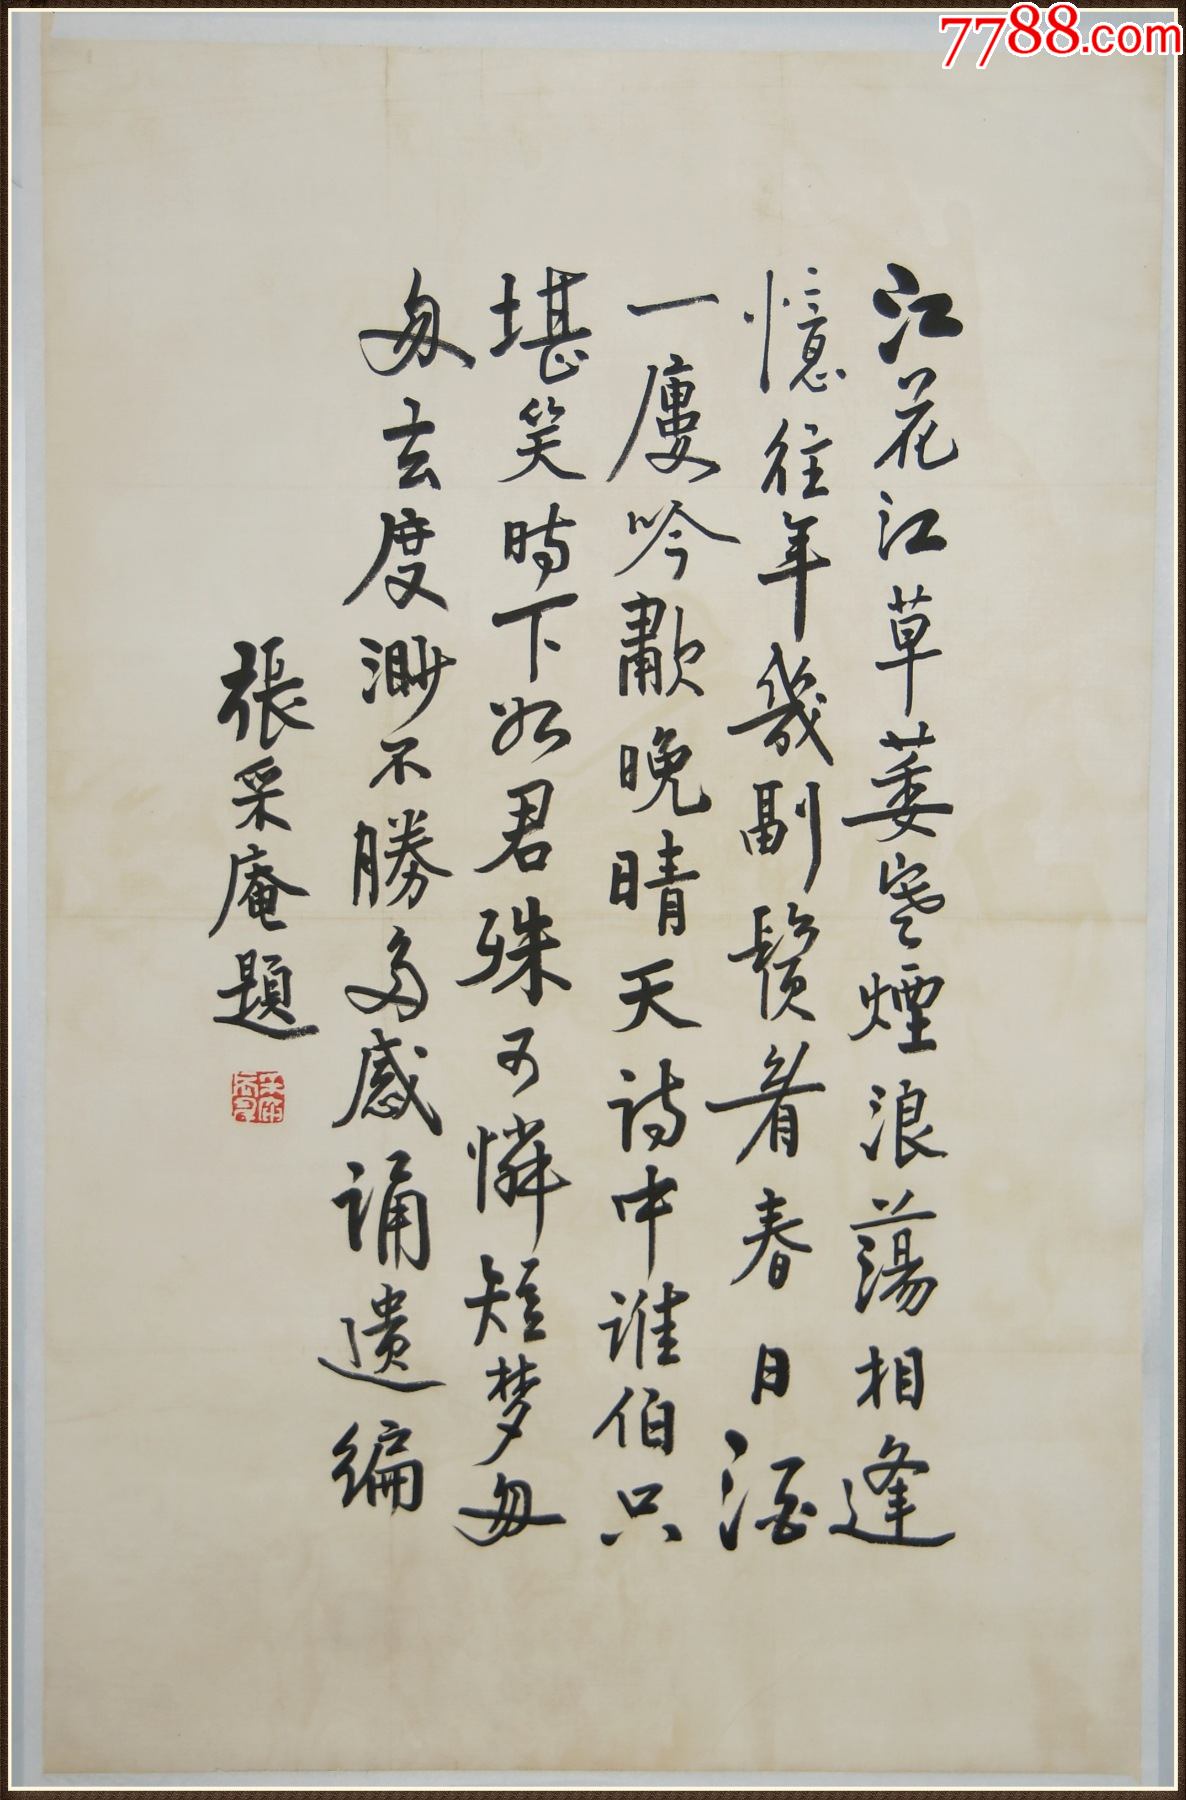 7788.com
江花江草萋寒煙浪蕩相逢
憶往年幾副鬢看春日酒
一廔吟歗晚晴天詩中誰伯只
堪笑時下如君殊可憐短梦匆
匆玄度渺不勝多感誦遺編
張采庵題